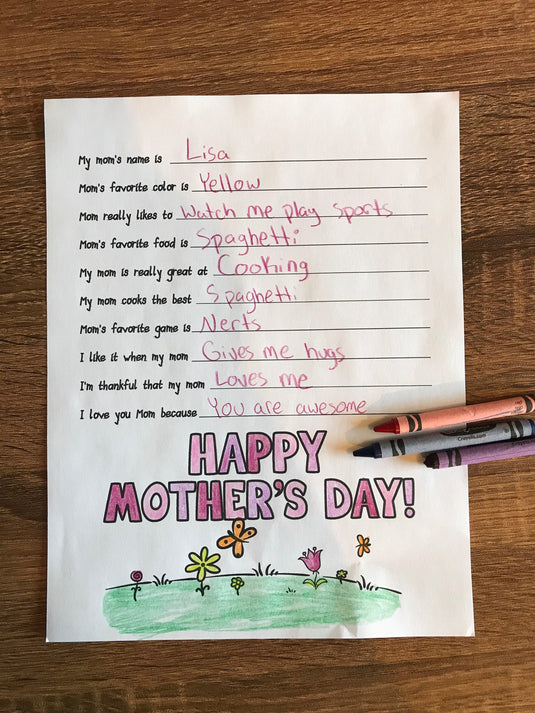 My mom's name is Lisa
Mom's favorite color is Yellow
Mom really likes to Watch me play Sports
Mom's favorite food is Spaghetti
My mom is really great at Cooking
My mom cooks the best Spaghetti
Mom's favorite game is Nerts
I like it when my mom Gives me hugs
I'm thankful that my mom Loves me
I love you Mom because You are awesome
HAPPY
MOTHER'S DAY!